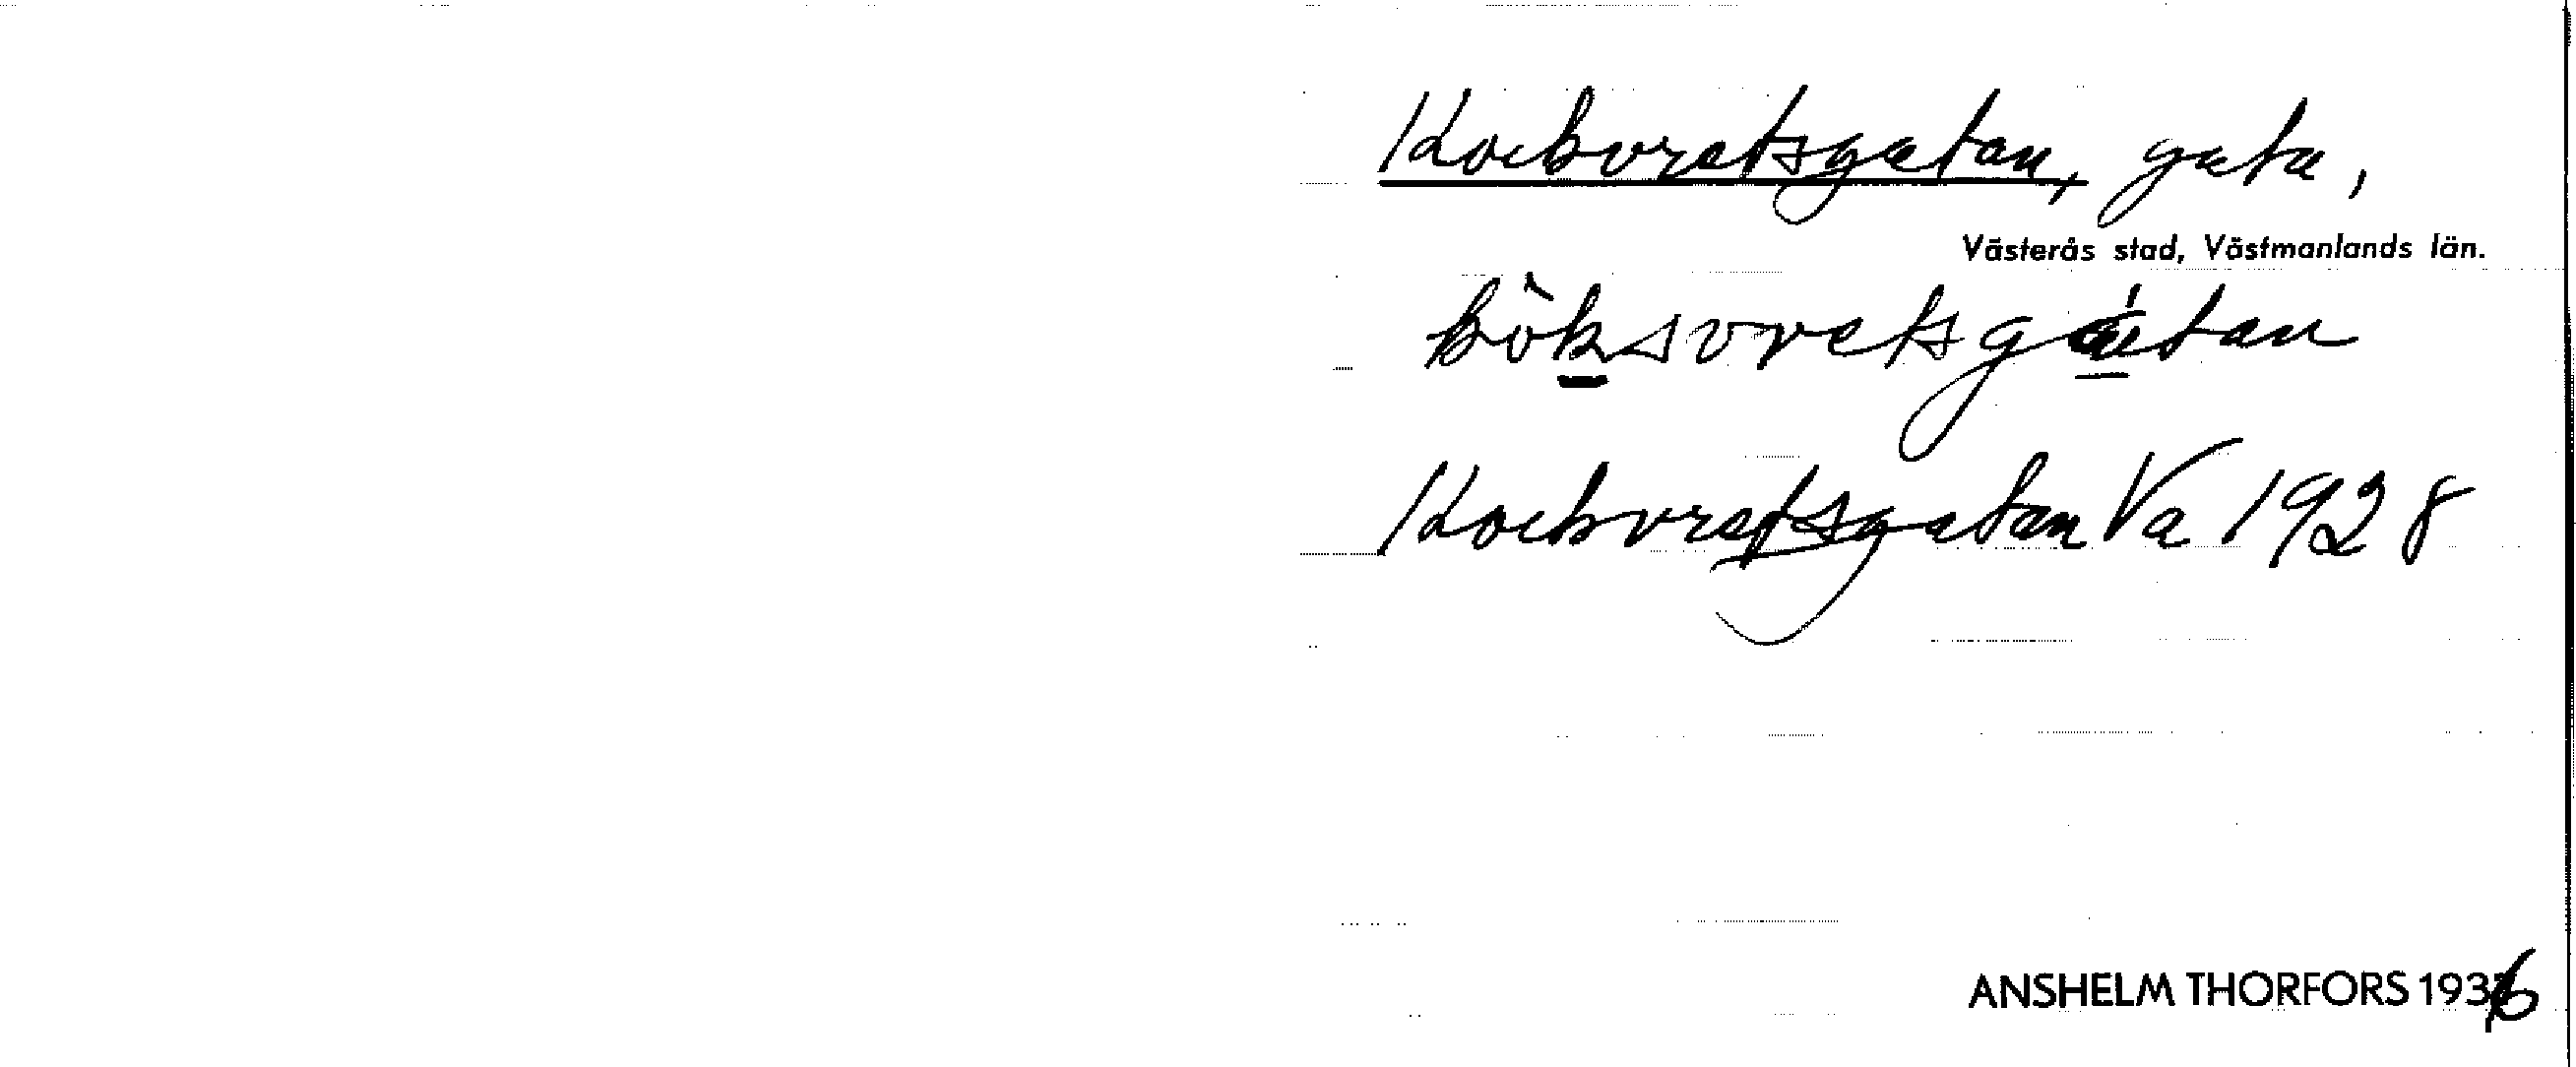 Kockvretsgatan, gata,
Västerås stad, Västmanlands län.
kòksvretsgátan
Kockvretsgatan Va 1928
ANSHELM THORFORS 1936